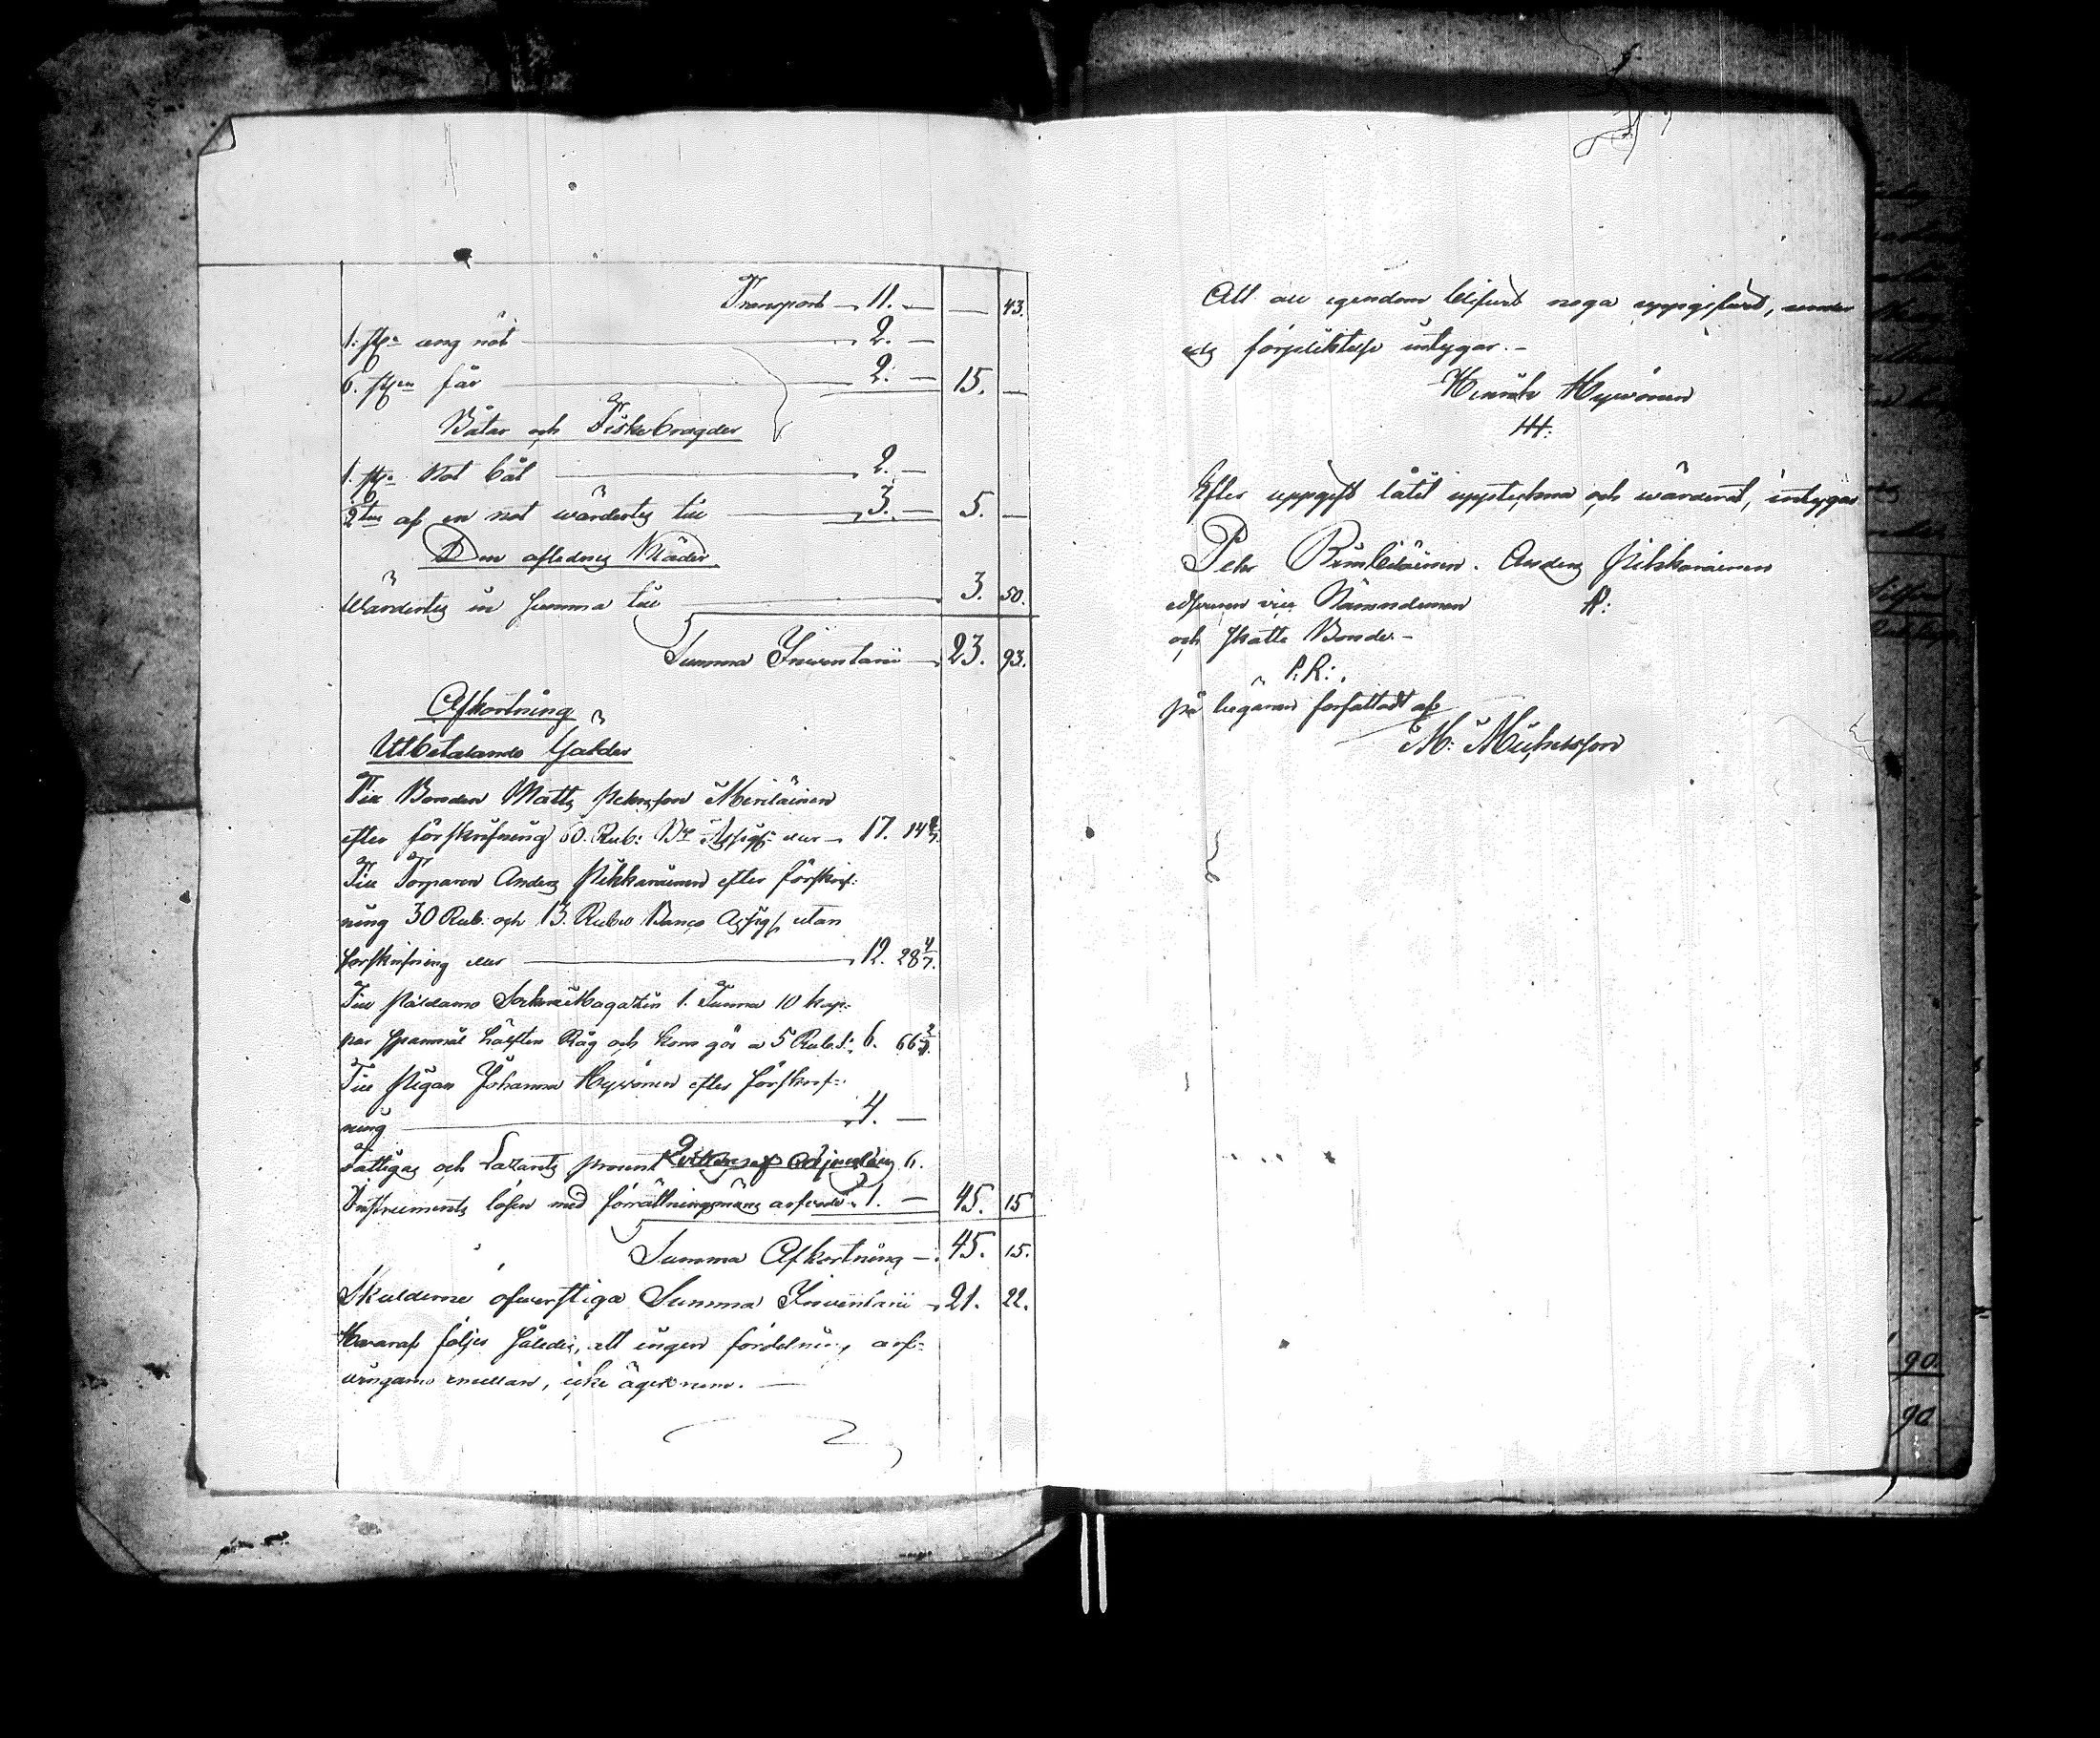 Transport 11. — — 43.
1. st. ung nöt 2. —
6. st. får 2. — 15. —
Båtar och Fiskebragder
1. st. Not båt 2. —
af en not wärdertes till 3. — 5. —
Den aflednes Kläder
Wärdertes in Summa till 3. 50.
Summa Inventarii 23. 93.
Afkortning
Utbetalande Gälder
Till Bonden Matts Pehrsson Meriläinen
efter förskrifning 60. Rub: B:co Assign: eller 17. 14 2/7.
Till Torparen Anders Pikkarainen efter förskrif:
ning 30 Rub. och 13. Rubel Banco Assign utan
förskrifning eller 12. 28 4/7.
Till Paldamo Sockne Magazin 1. Tunna 10 kap:
par Spanmål hälften Råg och korn gör a 5 Rub. S: 6. 66 2/3.
Till Pigan Johanna Hyvönen efter förskrif:
ning 4. —
Fattigas och Lazaretts procent 6.
Instruments lösen med förrättningsmäns arfvode 1. — 45. 15
Summa Afkortning 45. 15.
Skulderne öfwerstiga Summa Inventarii 21. 22.
Haraf följer således, att ingen fördelning, arf-
wingarne emellan, icke äger rum. —
Att all egendom blifwit noga uppgifwet, under
eds förpliktelse intygar. —
Henrik Hyvönen
HH:
Efter uppgift låtit uppteckna och wärderat, intygar
Pehr Anders Pikkarainen
edsvuren vice Nämndeman A:
och Skatte Bonde. —
P. R:
på begäran författadt af
M: Michelsson
90.
90